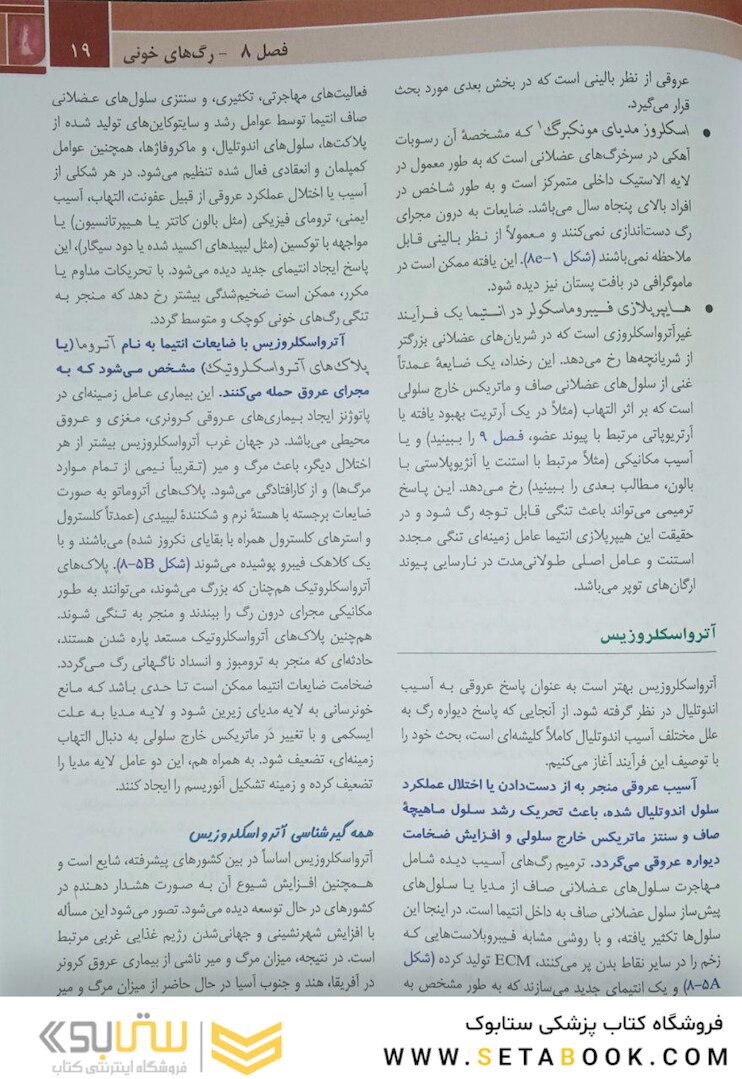 فصل ۸ - رگ‌های خونی
۱۹
عروقی از نظر بالینی است که در بخش بعدی مورد بحث
قرار می‌گیرد.
● اسکلروز مدیای مونکبرگ۱ که مشخصهٔ آن رسوبات
آهکی در سرخرگ‌های عضلانی است که به طور معمول در
لایه الاستیک داخلی متمرکز است و به طور شاخص در
افراد بالای پنجاه سال می‌باشد. ضایعات به درون مجرای
رگ دست‌اندازی نمی‌کنند و معمولاً از نظر بالینی قابل
ملاحظه نمی‌باشند (شکل ۱-8e). این یافته ممکن است در
ماموگرافی در بافت پستان نیز دیده شود.
● هایپرپلازی فیبروماسکولر در انتیما یک فرآیند
غیرآترواسکلروزی است که در شریان‌های عضلانی بزرگتر
از شریانچه‌ها رخ می‌دهد. این رخداد، یک ضایعهٔ عمدتاً
غنی از سلول‌های عضلانی صاف و ماتریکس خارج سلولی
است که بر اثر التهاب (مثلاً در یک آرتریت بهبود یافته یا
آرتریوپاتی مرتبط با پیوند عضو، فصل ۹ را ببینید) و یا
آسیب مکانیکی (مثلاً مرتبط با استنت یا آنژیوپلاستی با
بالون، مطالب بعدی را ببینید) رخ می‌دهد. این پاسخ
ترمیمی می‌تواند باعث تنگی قابل توجه رگ شود و در
حقیقت این هیپرپلازی انتیما عامل زمینه‌ای تنگی مجدد
استنت و عامل اصلی طولانی‌مدت در نارسایی پیوند
ارگان‌های توپر می‌باشد.
آترواسکلروزیس
آترواسکلروزیس بهتر است به عنوان پاسخ عروقی به آسیب
اندوتلیال در نظر گرفته شود. از آنجایی که پاسخ دیواره رگ به
علل مختلف آسیب اندوتلیال کاملاً کلیشه‌ای است، بحث خود را
با توصیف این فرآیند آغاز می‌کنیم.
آسیب عروقی منجر به از دست‌دادن یا اختلال عملکرد
سلول اندوتلیال شده، باعث تحریک رشد سلول ماهیچهٔ
صاف و سنتز ماتریکس خارج سلولی و افزایش ضخامت
دیواره عروقی می‌گردد. ترمیم رگ‌های آسیب دیده شامل
مهاجرت سلول‌های عضلانی صاف از مدیا یا سلول‌های
پیش‌ساز سلول عضلانی صاف به داخل انتیما است. در اینجا این
سلول‌ها تکثیر یافته، و با روشی مشابه فیبروبلاست‌هایی که
زخم را در سایر نقاط بدن پر می‌کنند، ECM تولید کرده (شکل
۸-۵A) و یک انتیمای جدید می‌سازند که به طور مشخص به
فعالیت‌های مهاجرتی، تکثیری، و سنتزی سلول‌های عضلانی
صاف انتیما توسط عوامل رشد و سایتوکاین‌های تولید شده از
پلاکت‌ها، سلول‌های اندوتلیال، و ماکروفاژها، همچنین عوامل
کمپلمان و انعقادی فعال شده تنظیم می‌شود. در هر شکلی از
آسیب یا اختلال عملکرد عروقی از قبیل عفونت، التهاب، آسیب
ایمنی، ترومای فیزیکی (مثل بالون کاتتر یا هیپرتانسیون) یا
مواجهه با توکسین (مثل لیپیدهای اکسید شده یا دود سیگار)، این
پاسخ ایجاد انتیمای جدید دیده می‌شود. با تحریکات مداوم یا
مکرر، ممکن است ضخیم‌شدگی بیشتر رخ دهد که منجر به
تنگی رگ‌های خونی کوچک و متوسط گردد.
آترواسکلروزیس با ضایعات انتیما به نام آتروما (یا
پلاک‌های آترواسکلروتیک) مشخص می‌شود که به
مجرای عروق حمله می‌کنند. این بیماری عامل زمینه‌ای در
پاتوژنز ایجاد بیماری‌های عروقی کرونری، مغزی و عروق
محیطی می‌باشد. در جهان غرب آترواسکلروزیس بیشتر از هر
اختلال دیگر، باعث مرگ و میر (تقریباً نیمی از تمام موارد
مرگ‌ها) و از کارافتادگی می‌شود. پلاک‌های آتروماتو به صورت
ضایعات برجسته با هستهٔ نرم و شکنندهٔ لیپیدی (عمدتاً کلسترول
و استرهای کلسترول همراه با بقایای نکروز شده) می‌باشند و با
یک کلاهک فیبرو پوشیده می‌شوند (شکل ۸-۵B). پلاک‌های
آترواسکلروتیک هم‌چنان که بزرگ می‌شوند، می‌توانند به طور
مکانیکی مجرای درون رگ را ببندند و منجر به تنگی شوند.
هم‌چنین پلاک‌های آترواسکلروتیک مستعد پاره شدن هستند،
حادثه‌ای که منجر به ترومبوز و انسداد ناگهانی رگ می‌گردد.
ضخامت ضایعات انتیما ممکن است تا حدی باشد که مانع
خونرسانی به لایه مدیای زیرین شود و لایه مدیا به علت
ایسکمی و با تغییر در ماتریکس خارج سلولی به دنبال التهاب
زمینه‌ای، تضعیف شود. به همراه هم، این دو عامل لایه مدیا را
تضعیف کرده و زمینه تشکیل آنوریسم را ایجاد کنند.
همه گیرشناسی آترواسکلروزیس
آترواسکلروزیس اساساً در بین کشورهای پیشرفته، شایع است و
همچنین افزایش شیوع آن به صورت هشدار دهنده در
کشورهای در حال توسعه دیده می‌شود. تصور می‌شود این مسأله
با افزایش شهرنشینی و جهانی‌شدن رژیم غذایی غربی مرتبط
است. در نتیجه، میزان مرگ و میر ناشی از بیماری عروق کرونر
در آفریقا، هند و جنوب آسیا در حال حاضر از میزان مرگ و میر
فروشگاه کتاب پزشکی ستابوک
WWW.SETABOOK.COM
ستابوک
فروشگاه اینترنتی کتاب